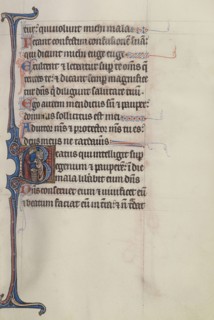 tur: qui volunt michi mala
Ferant confestim confusionem suā:
qui dicunt michi euge euge
Exultent et letentur sup te om̄s q̄
rentes te: et dicant semp magnificet
tur dn̄s q̄ diligunt salutare tuū.
Ego autem mendicus sū et pauper:
dominus sollicitus est mei
Adiutor m̄s et protector m̄s tu es:
deus meus ne tardaueris
Beatus qui intelligit sup
egenum et pauperē: ī die
mala liberabit eum dn̄s
Dn̄s conseruet eum et uiuificet eū
et beatum faciat eū in tr̄a: et n̄ tradat